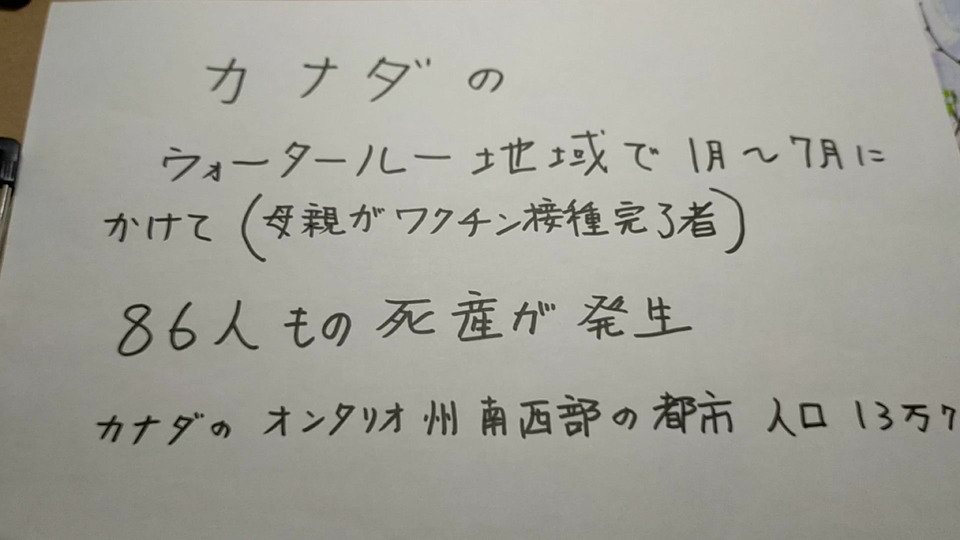 カナダの
ウォータールー地域で1月～7月に
かけて(母親がワクチン接種完了者)
86人もの死産が発生
カナダのオンタリオ州南西部の都市 人口13万7